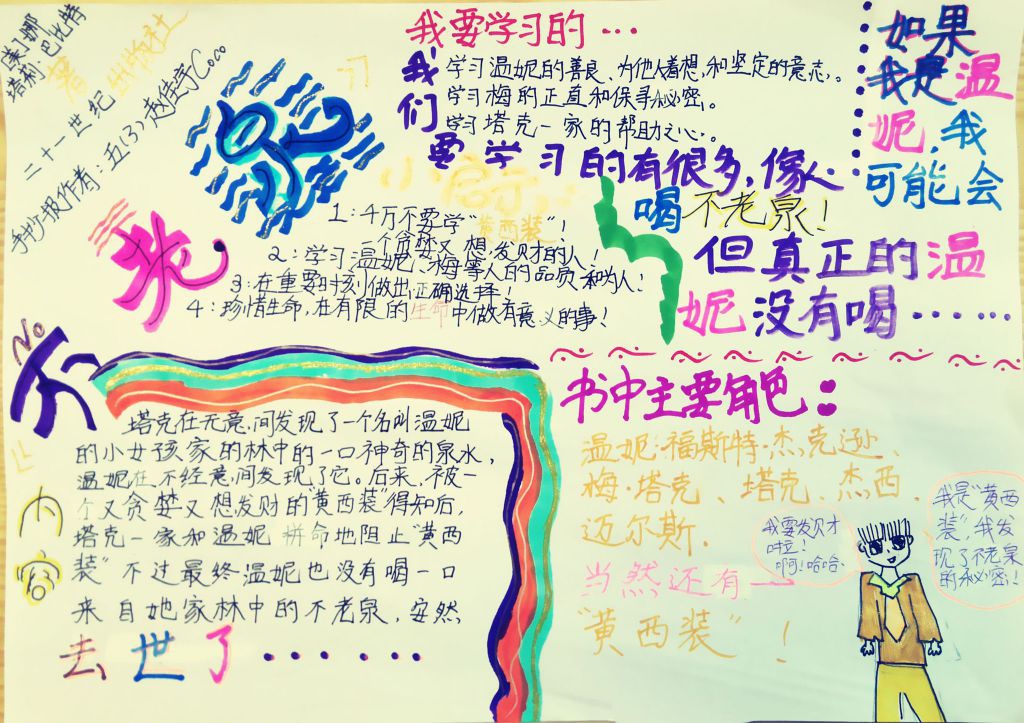 [美]娜塔莉·巴比特
著
二十一世纪出版社
手抄报作者:五(3)赵佳宁Coco
No
不老泉
我要学习的…
学习温妮的善良、为他人着想,和坚定的意志。
学习梅的正直和保守秘密。
学习塔克一家的帮助之心。
我们要学习的有很多,像…
小启示:
1:千万不要学"黄西装"!
一个贪婪又想发财的人!
2:学习温妮、梅等人的品质和为人!
3:在重要时刻做出正确选择!
4:珍惜生命,在有限的生命中做有意义的事!
如果
我是温
妮,我
可能会
喝不老泉!
但真正的温
妮没有喝……
内容
塔克在无意间发现了一个名叫温妮
的小女孩家的林中的一口神奇的泉水,
温妮在不经意间发现了它。后来,被一
个又贪婪又想发财的"黄西装"得知后,
塔克一家和温妮拼命地阻止"黄西
装"不过最终温妮也没有喝一口
来自她家林中的不老泉,安然
去世了······
书中主要角色:
温妮·福斯特·杰克逊、
梅·塔克、塔克、杰西、
迈尔斯.
当然还有——
"黄西装"!
我要发财
啦!
啊!哈哈
我是"黄西
装",我发
现了不老泉
的秘密!